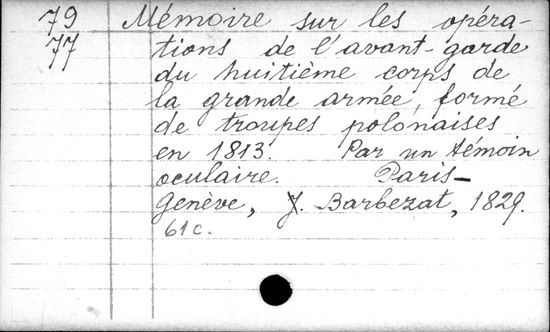 79 Mémoire sur les opéra-
77 tions de l'avant-garde
du huitième corps de
la grande armée, formé
de troupes polonaises
en 1813. Par un témoin
oculaire. Paris-
Genève, J. Barbezat, 1829.
61 c.